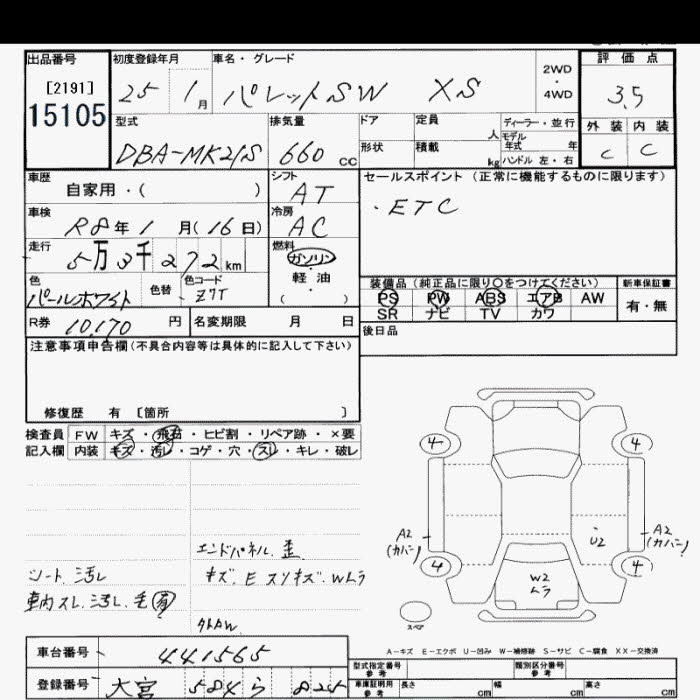 出品番号 初度登録年月 車名・グレード 評価点
[2191] 25 1月 パレットSW XS 2WD・4WD 3.5
15105
型式 排気量 ドア 定員 人 ディーラー・並行 外装 内装
DBA-MK21S 660cc 形状 積載 kg モデル年式 年 ハンドル 左・右 C C
車歴 シフト セールスポイント (正常に機能するものに限ります)
自家用・( ) AT ・ETC
車検 冷房
R8年1月(16日) AC
走行 燃料
5万3千272km ガソリン・軽油・( )
色 色替 色コード 装備品 (純正品に限り○をつけてください) 新車保証書
パールホワイト Z7T PS PW ABS エアB AW 有・無
SR ナビ TV カワ
R券 10,170円 名変期限 月 日 後日品
注意事項申告欄(不具合内容等は具体的に記入して下さい)
修復歴 有 [箇所 ]
検査員 FW キズ・飛石・ヒビ割・リペア跡・×要
記入欄 内装 キズ・汚レ・コゲ・穴・スレ・キレ・破レ
4 4
A2 (カバー) U2 A2 (カバー)
エンドパネル.歪
シート.汚レ キズ.E スリキズ.Wムラ
4 W2 ムラ 4
車内スレ.汚レ.毛有
外AW
スペア
A-キズ E-エクボ U-凹み W-補修跡 S-サビ C-腐食 XX-交換済
車台番号 441565 型式指定番号 参考 類別区分番号 参考
登録番号 大宮 584 ら 825 車庫証明用 参考 長さ cm 幅 cm 高さ cm